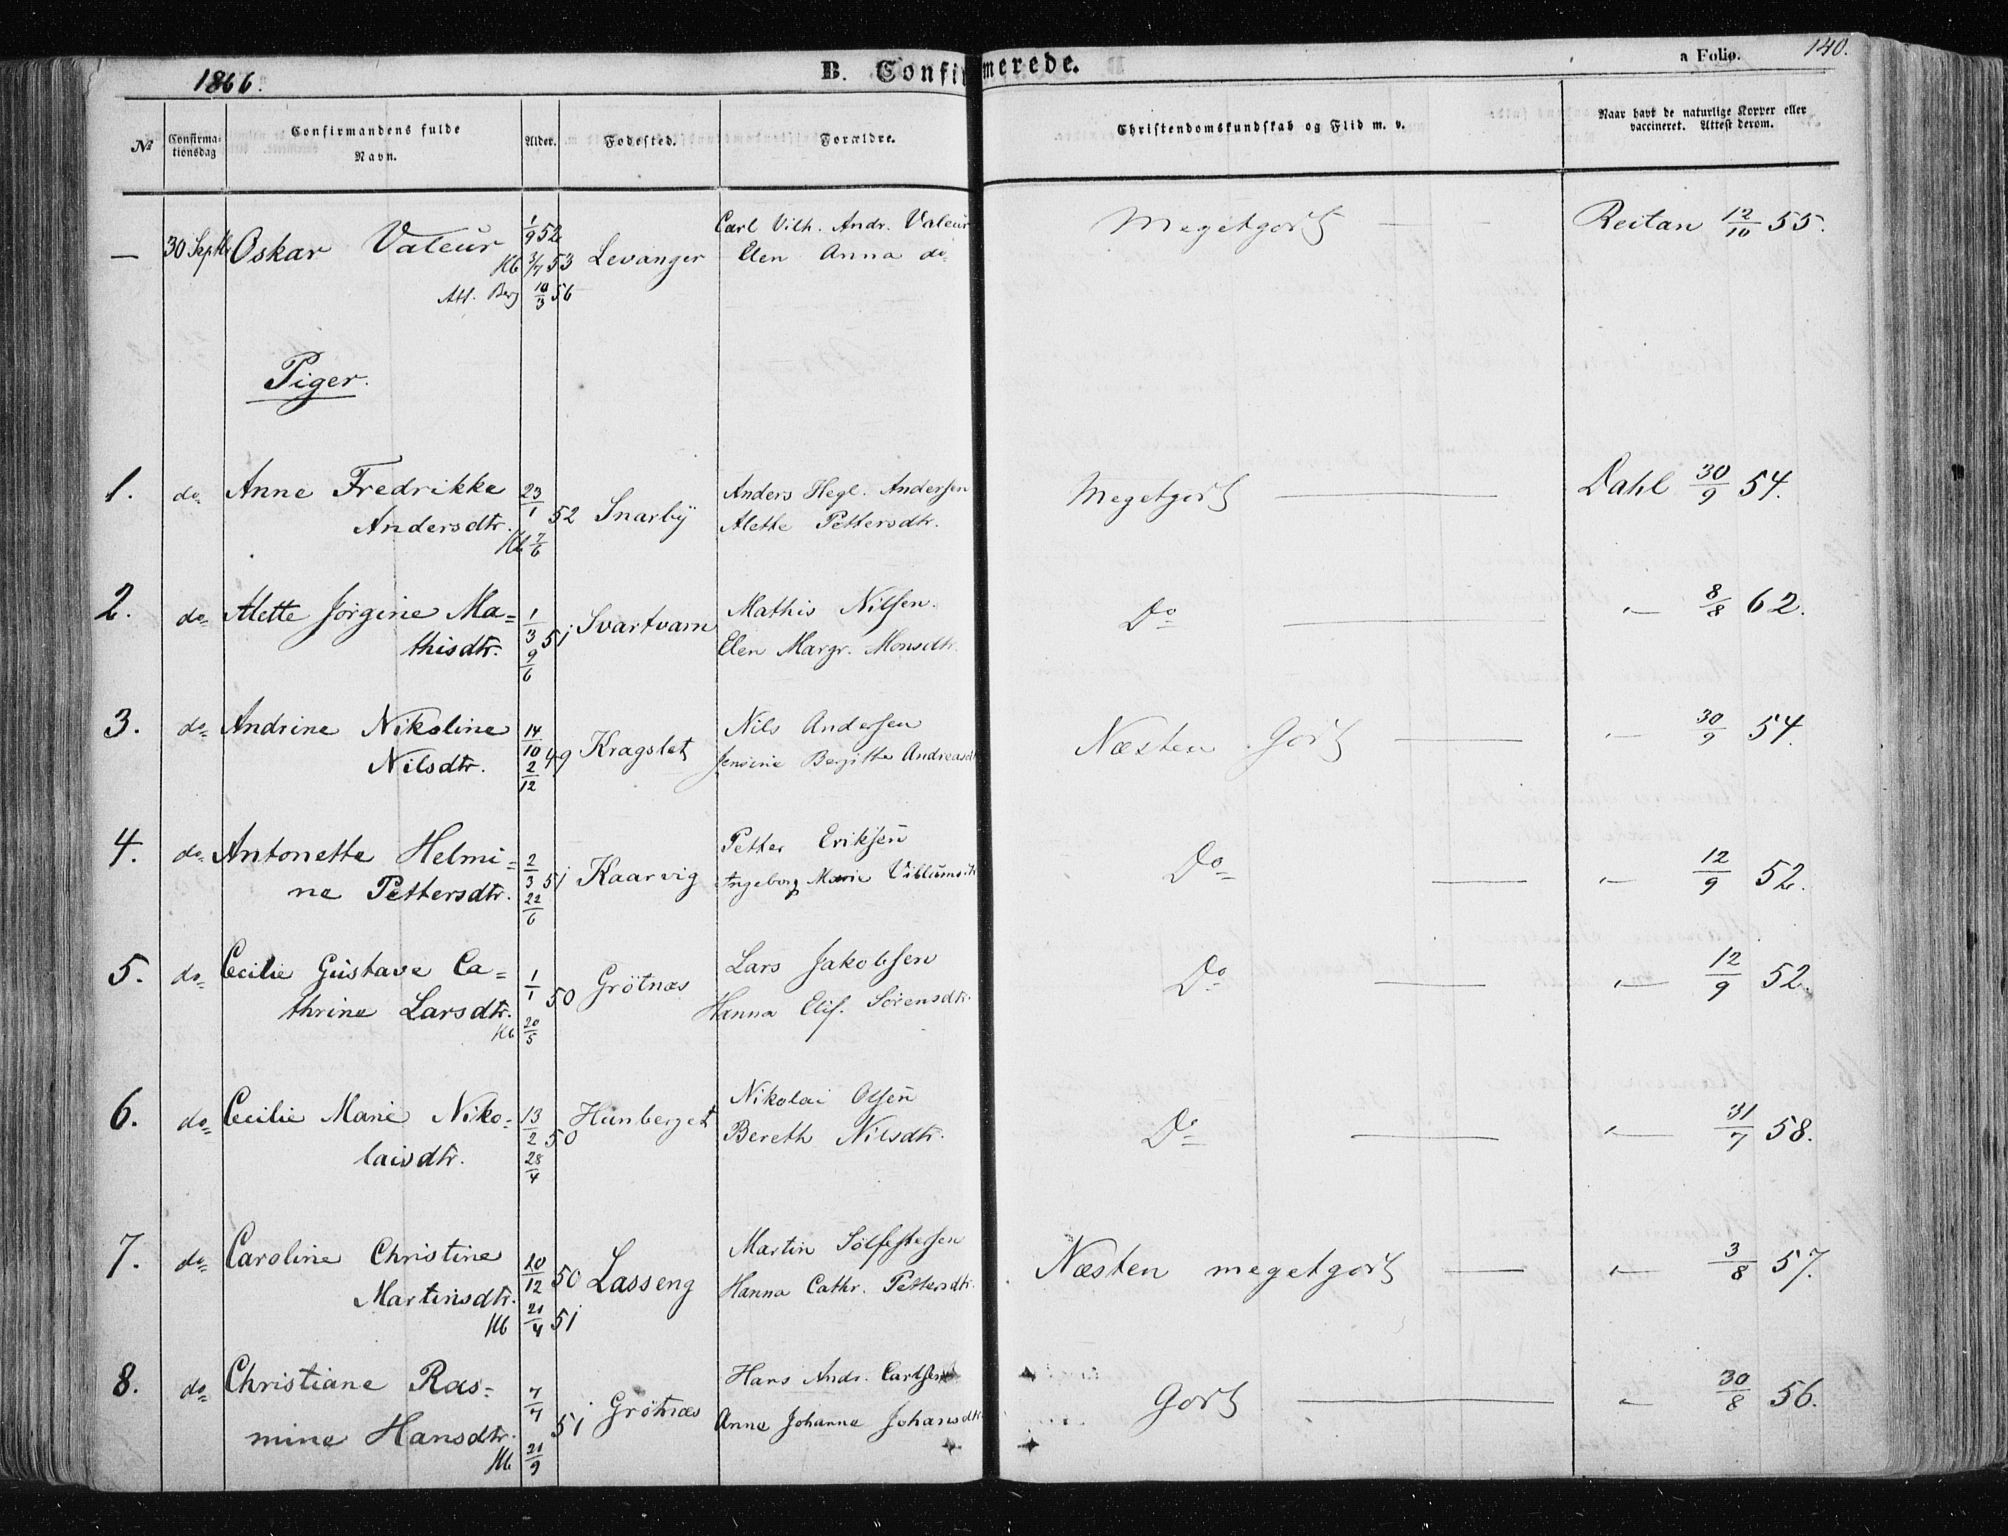 1866.
B. Confirmerede.
a Folio.
140.
№
Confirma-
tionsdag
Confirmandens fulde
Navn.
Alder.
Fødested.
Forældre.
Christendomskundskab og Flid m. v.
Naar havt de naturlige Kopper eller
vaccineret. Attest derom.
— 30 Septbr Oskar Valeur 1/9 52 Levanger Carl Vilh. Andr. Valeur Megetgodt — Reitan 12/10 55.
Kb 3/7 53 Elen Anna do
Att. Berg 10/3 56
Piger.
1. do Anne Fredrikke 23/1 52 Snarby Anders Hegl. Andersen Megetgodt — Dahl 30/9 54.
Andersdtr. Alette Pettersdtr.
Kb 7/6
2. do Alette Jørgine Ma= 1/3 51 Svartvam Mathis Nilsen. Do — " — 8/8 62.
thisdtr. 9/6 Elen Margr. Monsdtr.
3. do Andrine Nikoline 14/10 49 Kragslet Nils Andersen Næsten Godt — " — 30/9 54.
Nilsdtr. 2/12 Jensine Bergitte Andreasdtr
4. do Antonette Helmi= 2/3 51 Kaarvig Petter Eriksen Do — " — 12/9 52.
ne Pettersdtr. 22/6 Ingeborg Marie Villumsdtr
5. do Cecilie Gustava Ca= 1/1 50 Grötnæs Lars Jakobsen Do — " — 12/9 52.
thrine Larsdtr. Hanna Elis. Sörensdtr.
Kb 20/5
6. do Cecilie Marie Niko- 13/2 50 Hunberget Nikolai Olsen Do — " — 31/7 58.
laisdtr. 28/4 Bereth Nilsdtr.
7. do Caroline Christine 10/12 50 Lasseng Martin Sölfestersen Næsten megetgodt — " — 3/8 57.
Martinsdtr. Hanna Cathr. Pettersdtr.
Kb 21/4 51
8. do Christiane Ras- 7/7 51 Grötnæs Hans Andr. Carlsen Godt — " — 30/8 56.
mine Hansdtr. Anna Johanna Johansdtr
Kb 21/9